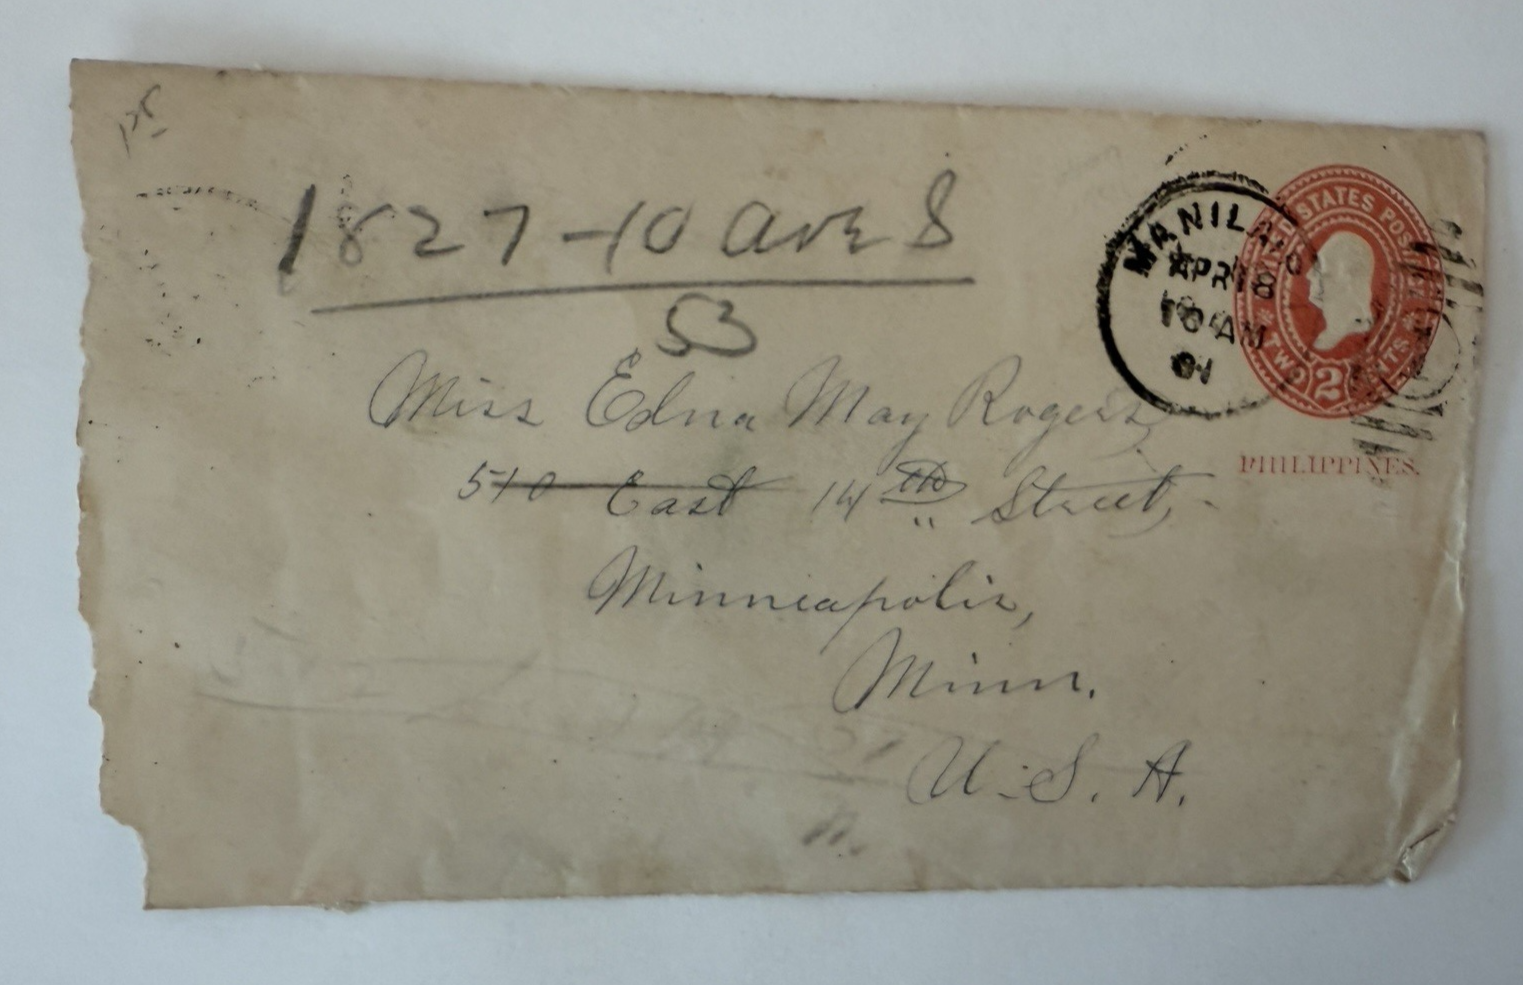 1827-10 Ave S
53
MANILA
APR 8
10 AM
01
UNITED STATES POSTAGE
TWO 2 CENTS
PHILIPPINES.
Miss Edna May Rogers,
510 East 14th Street,
Minneapolis,
Minn.
U.S.A.